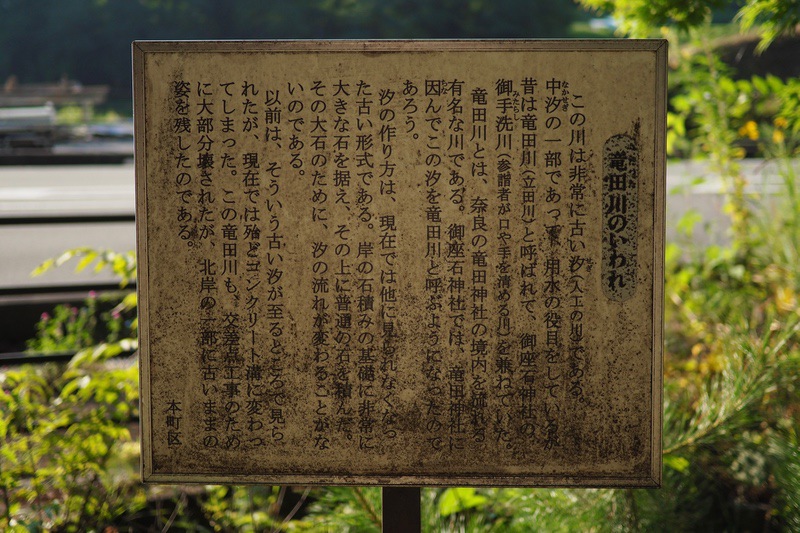 竜田川のいわれ
この川は非常に古い汐(人工の川)である。
中汐の一部であって、用水の役目をしているが
昔は竜田川(立田川)と呼ばれて、御座石神社の
御手洗川(参詣者が口や手を清める川)を兼ねていた。
竜田川とは、奈良の竜田神社の境内を流れる
有名な川である。御座石神社では、竜田神社に
因んでこの汐を竜田川と呼ぶようになったので
あろう。
汐の作り方は、現在では他に見られなくなっ
た古い形式である。岸の石積みの基礎に非常に
大きな石を据え、その上に普通の石を積んだ。
その大石のために、汐の流れが変わることがな
いのである。
以前は、そういう古い汐が至るところで見ら
れたが、現在では殆どコンクリート溝に変わっ
てしまった。この竜田川も、交差点工事のため
に大部分壊されたが、北岸の一部に古いままの
姿を残したのである。
本町区